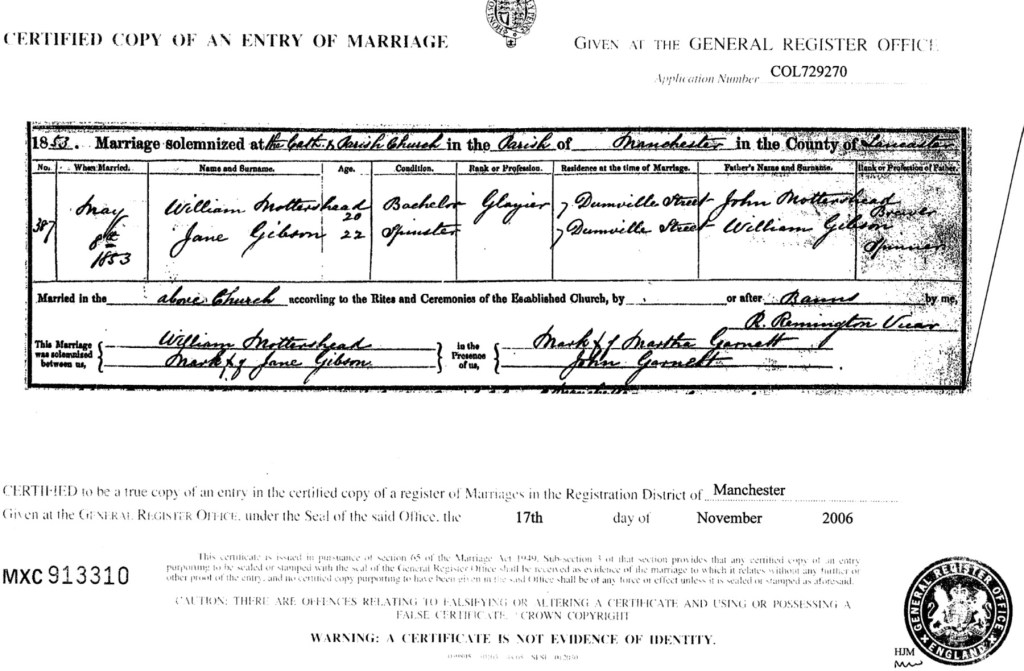 CERTIFIED COPY OF AN ENTRY OF MARRIAGE
GIVEN AT THE GENERAL REGISTER OFFICE
Application Number COL729270
1853. Marriage solemnized at the Cath. & Parish Church in the Parish of Manchester in the County of Lancaster
No. When Married. Name and Surname. Age. Condition. Rank or Profession. Residence at the time of Marriage. Father's Name and Surname. Rank or Profession of Father.
387 May 8th 1853
William Mottershead 20 Bachelor Glazier 7 Dumville Street John Mottershead Brewer
Jane Gibson 22 Spinster 7 Dumville Street William Gibson Spinner
Married in the above Church according to the Rites and Ceremonies of the Established Church, by or after Banns by me,
R. Remington Vicar
This Marriage was solemnized between us,
William Mottershead
Mark x of Jane Gibson
in the Presence of us,
Mark x of Martha Garnett
John Garnett
CERTIFIED to be a true copy of an entry in the certified copy of a register of Marriages in the Registration District of Manchester
Given at the GENERAL REGISTER OFFICE, under the Seal of the said Office, the 17th day of November 2006
This certificate is issued in pursuance of section 65 of the Marriage Act 1949. Sub-section 3 of that section provides that any certified copy of an entry
purporting to be sealed or stamped with the seal of the General Register Office shall be received as evidence of the marriage to which it relates without any further or
other proof of the entry, and no certified copy purporting to have been given in the said Office shall be of any force or effect unless it is sealed or stamped as aforesaid.
MXC 913310
CAUTION: THERE ARE OFFENCES RELATING TO FALSIFYING OR ALTERING A CERTIFICATE AND USING OR POSSESSING A
FALSE CERTIFICATE. CROWN COPYRIGHT
WARNING: A CERTIFICATE IS NOT EVIDENCE OF IDENTITY.
GENERAL REGISTER OFFICE
ENGLAND
HJM